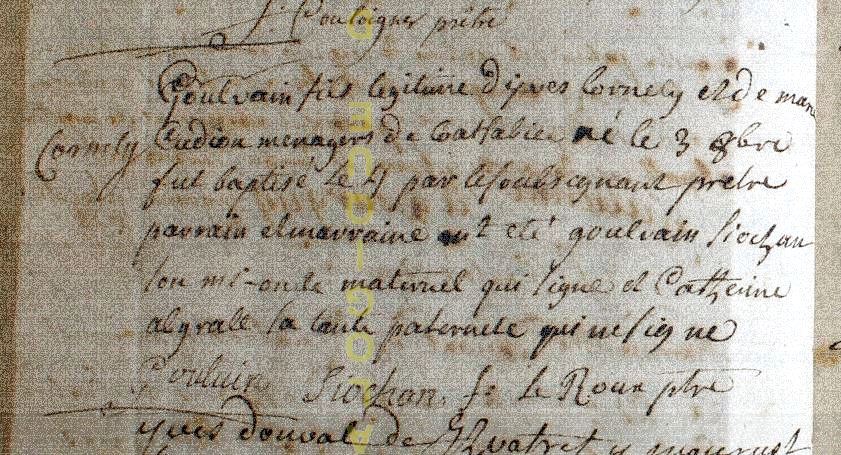 f. Pouloigner prêtre
Goulvain fils legitime d'yves Cornely et de marie
Cornely
Cudion menagers de né le 3 8bre
fut baptisé le 4 par le soubsignant pretre
parrain et marraine ont eté goulvain Siochan
son mi-oncle maternel qui signe et Catherine
abgrall sa tante paternele qui ne signe
Goulvain Siochan. f: le Roux ptre
yves douval de